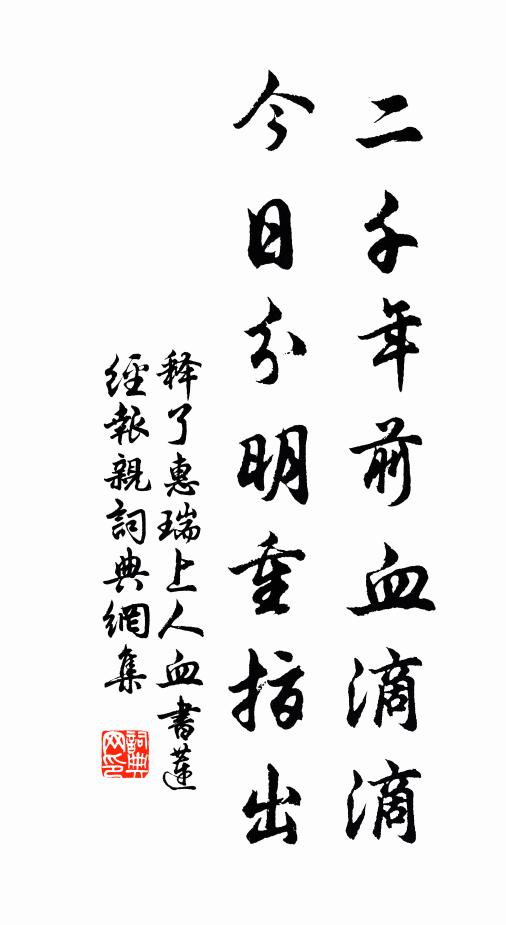 二千年前血滴滴
今日分明重指出
释了惠瑞上人血書蓮
經報親詞典網集
詞典网印